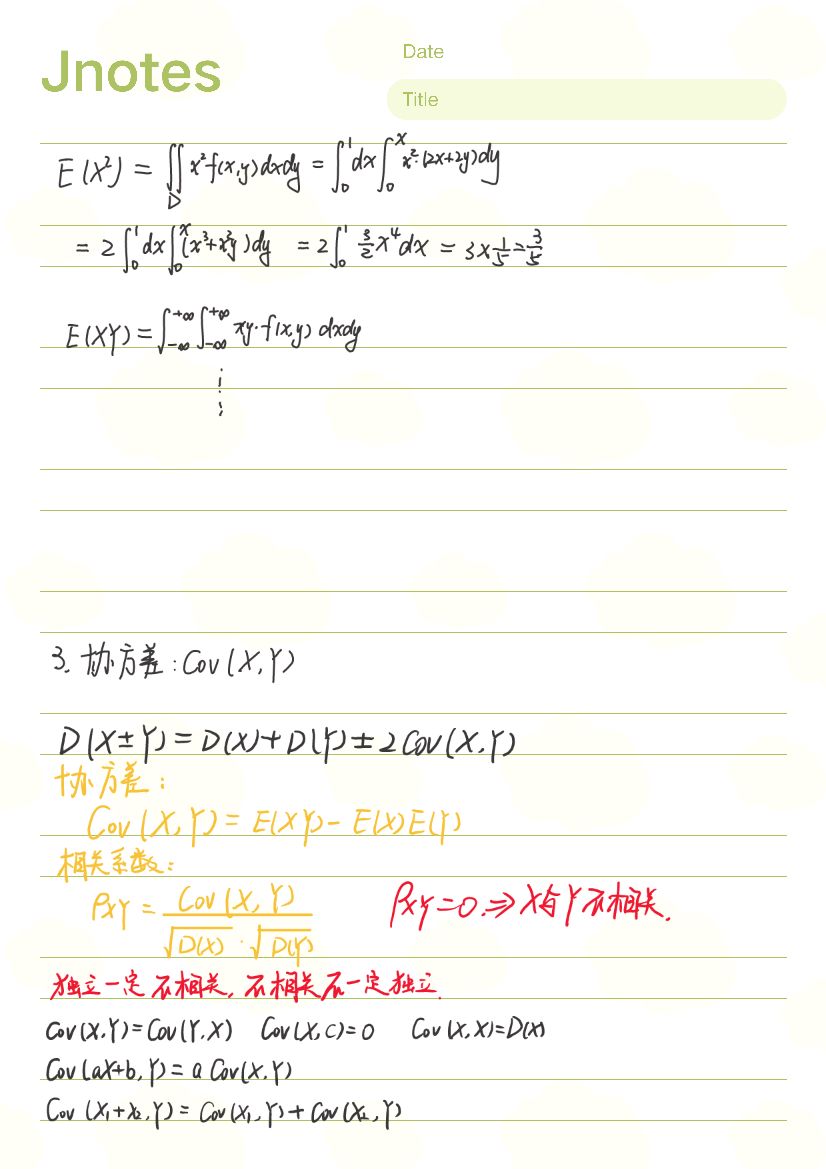 Jnotes
Date
Title
E(X²) = ∬_D x²f(x,y)dxdy = ∫₀¹dx∫₀ˣ x²·(2x+2y)dy
= 2∫₀¹dx∫₀ˣ(x³+x²y)dy = 2∫₀¹ 3/2 x⁴dx = 3×1/5=3/5
E(XY)=∫_{-∞}^{+∞}∫_{-∞}^{+∞} xy·f(x,y) dxdy
⋮
3. 协方差:Cov(X,Y)
D(X±Y)=D(X)+D(Y)±2Cov(X,Y)
协方差:
Cov(X,Y)=E(XY)-E(X)E(Y)
相关系数:
ρXY = Cov(X,Y) / √D(X)·√D(Y) ρXY=0.⇒X与Y不相关.
独立一定不相关,不相关不一定独立.
Cov(X,Y)=Cov(Y,X) Cov(X,C)=0 Cov(X,X)=D(X)
Cov(aX+b,Y)=a Cov(X,Y)
Cov(X₁+X₂,Y)=Cov(X₁,Y)+Cov(X₂,Y)